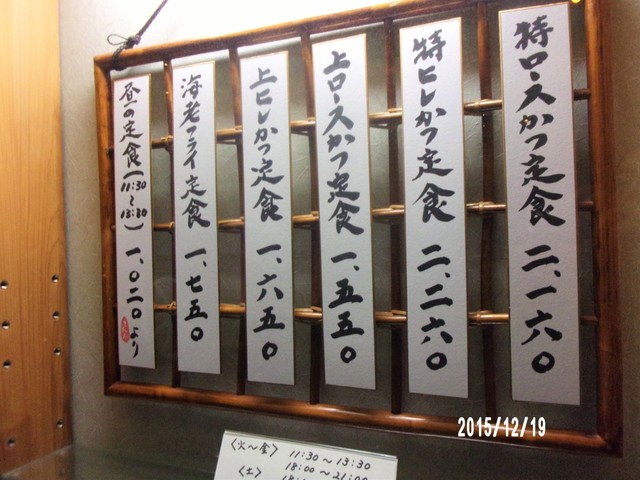 特ロースかつ定食 二、一六〇
特ヒレかつ定食 二、二六〇
上ロースかつ定食 一、五五〇
上ヒレかつ定食 一、六五〇
海老フライ定食 一、七五〇
昼の定食(11:30～13:30) 一、〇二〇より
〈火～金〉 11:30～13:30
18:00～21:00
〈土〉
2015/12/19